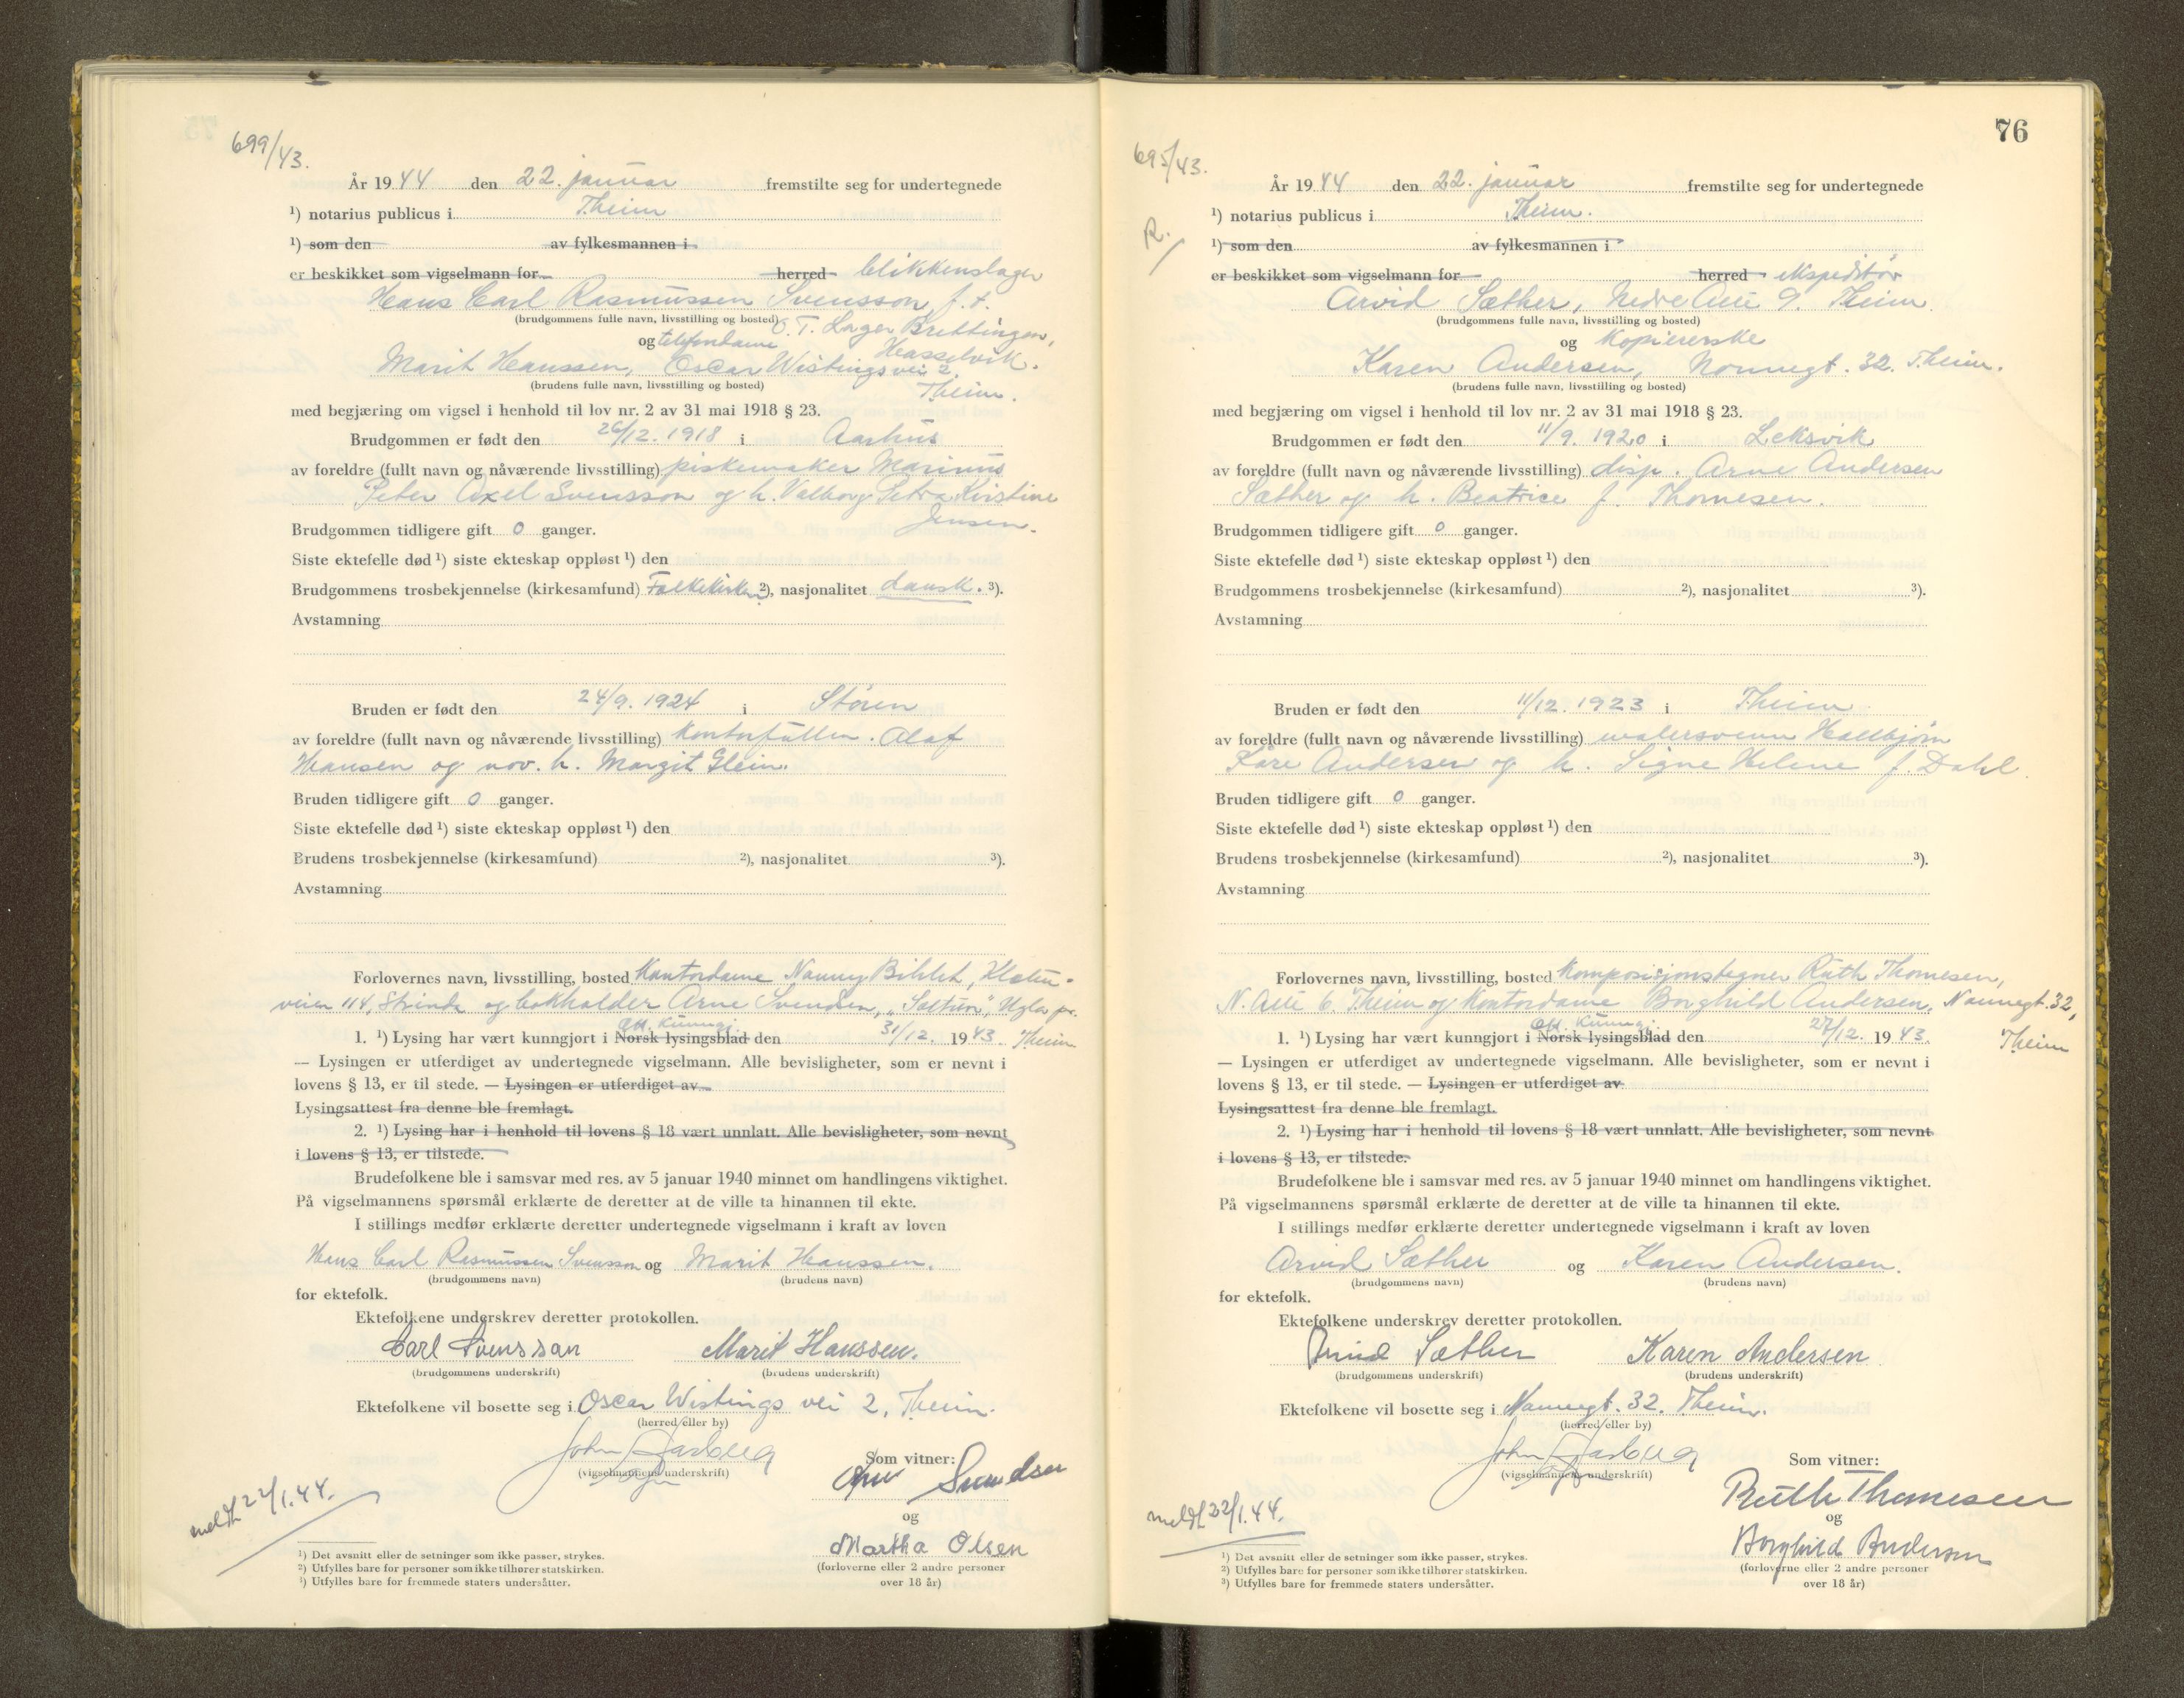 699/43.
År 1944 den 22. januar fremstilte seg for undertegnede
¹) notarius publicus i Theim
¹) som den av fylkesmannen i
er beskikket som vigselmann for herred blikkenslager
Hans Carl Rasmussen Svensson f. t.
(brudgommens fulle navn, livsstilling og bosted) O. T. Lager Brettingen,
og telefondame Hasselvik.
Marit Hanssen, Oscar Wistings vei 2
(brudens fulle navn, livsstilling og bosted) Theim.
med begjæring om vigsel i henhold til lov nr. 2 av 31 mai 1918 § 23.
Brudgommen er født den 26/12. 1918 i Aarhus
av foreldre (fullt navn og nåværende livsstilling) piskemaker Marinus
Peter Axel Svensson og h. Valborg Petra Kristine
Jensen.
Brudgommen tidligere gift 0 ganger.
Siste ektefelle død ¹) siste ekteskap oppløst ¹) den
Brudgommens trosbekjennelse (kirkesamfund) Folkekirken ²), nasjonalitet dansk. ³).
Avstamning
Bruden er født den 24/9. 1924 i Støren
av foreldre (fullt navn og nåværende livsstilling) kontorfullm. Olaf
Hansen og nov. h. Margit Glein.
Bruden tidligere gift 0 ganger.
Siste ektefelle død ¹) siste ekteskap oppløst ¹) den
Brudens trosbekjennelse (kirkesamfund) ²), nasjonalitet ³).
Avstamning
Forlovernes navn, livsstilling, bosted Kontordame Nanny
veien 114, Strinda og bokholder Arne Svendsen, Ugla pr.
Off. kunngj.
1. ¹) Lysing har vært kunngjort i Norsk lysingsblad den 31/12. 1943. Theim
— Lysingen er utferdiget av undertegnede vigselmann. Alle bevisligheter, som er nevnt i
lovens § 13, er til stede. — Lysingen er utferdiget av
Lysingsattest fra denne ble fremlagt.
2. ¹) Lysing har i henhold til lovens § 18 vært unnlatt. Alle bevisligheter, som nevnt
i lovens § 13, er tilstede.
Brudefolkene ble i samsvar med res. av 5 januar 1940 minnet om handlingens viktighet.
På vigselmannens spørsmål erklærte de deretter at de ville ta hinannen til ekte.
I stillings medfør erklærte deretter undertegnede vigselmann i kraft av loven
Hans Carl Rasmussen Svensson og Marit Hanssen.
(brudgommens navn) (brudens navn)
for ektefolk.
Ektefolkene underskrev deretter protokollen.
Carl Svensson Marit Hanssen.
(brudgommens underskrift) (brudens underskrift)
Ektefolkene vil bosette seg i Oscar Wistings vei 2, Theim.
(herred eller by)
John
(vigselmannens underskrift)
Som vitner:
Arne Svendsen
og
Martha Olsen
(forloverne eller 2 andre personer
over 18 år)
meldt 22/1.44.
¹) Det avsnitt eller de setninger som ikke passer, strykes.
²) Utfylles bare for personer som ikke tilhører statskirken.
³) Utfylles bare for fremmede staters undersåtter.
76
695/43.
R.
År 1944 den 22. januar fremstilte seg for undertegnede
¹) notarius publicus i Theim.
¹) som den av fylkesmannen i
er beskikket som vigselmann for herred ekspeditør
Arvid Sæther, Nedre Allé 9. Theim
(brudgommens fulle navn, livsstilling og bosted)
og Kopiererske
Karen Andersen, Nonnegt. 32. Theim.
(brudens fulle navn, livsstilling og bosted)
med begjæring om vigsel i henhold til lov nr. 2 av 31 mai 1918 § 23.
Brudgommen er født den 11/9. 1920 i Leksvik
av foreldre (fullt navn og nåværende livsstilling) disp. Arne Andersen
Sæther og h. Beatrice f. Thomesen.
Brudgommen tidligere gift 0 ganger.
Siste ektefelle død ¹) siste ekteskap oppløst ¹) den
Brudgommens trosbekjennelse (kirkesamfund) ²), nasjonalitet ³).
Avstamning
Bruden er født den 11/12. 1923 i Theim
av foreldre (fullt navn og nåværende livsstilling) malersvenn Hallbjørn
Kåre Andersen og h. Signe Helene f. Dahl
Bruden tidligere gift 0 ganger.
Siste ektefelle død ¹) siste ekteskap oppløst ¹) den
Brudens trosbekjennelse (kirkesamfund) ²), nasjonalitet ³).
Avstamning
Forlovernes navn, livsstilling, bosted Komposisjonstegner Ruth Thomesen,
N. Allé 6. Theim og kontordame Borghild Andersen, Nonnegt. 32,
Off. kunngj.
1. ¹) Lysing har vært kunngjort i Norsk lysingsblad den 27/12. 1943. Theim
— Lysingen er utferdiget av undertegnede vigselmann. Alle bevisligheter, som er nevnt i
lovens § 13, er til stede. — Lysingen er utferdiget av
Lysingsattest fra denne ble fremlagt.
2. ¹) Lysing har i henhold til lovens § 18 vært unnlatt. Alle bevisligheter, som nevnt
i lovens § 13, er tilstede.
Brudefolkene ble i samsvar med res. av 5 januar 1940 minnet om handlingens viktighet.
På vigselmannens spørsmål erklærte de deretter at de ville ta hinannen til ekte.
I stillings medfør erklærte deretter undertegnede vigselmann i kraft av loven
Arvid Sæther og Karen Andersen.
(brudgommens navn) (brudens navn)
for ektefolk.
Ektefolkene underskrev deretter protokollen.
Arvid Sæther Karen Andersen
(brudgommens underskrift) (brudens underskrift)
Ektefolkene vil bosette seg i Nonnegt. 32. Theim.
(herred eller by)
John
(vigselmannens underskrift)
Som vitner:
Ruth Thomesen
og
Borghild Andersen
(forloverne eller 2 andre personer
over 18 år)
meldt 22/1.44.
¹) Det avsnitt eller de setninger som ikke passer, strykes.
²) Utfylles bare for personer som ikke tilhører statskirken.
³) Utfylles bare for fremmede staters undersåtter.